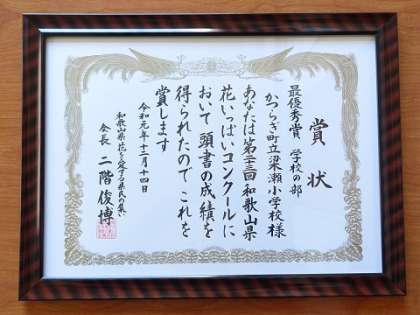 賞状
最優秀賞 学校の部
かつらぎ町立梁瀬小学校様
あなたは第三回和歌山県
花いっぱいコンクールに
おいて頭書の成績を
得られたのでこれを
賞します
令和元年十二月十四日
和歌山県花を愛する県民の集い
会長 二階俊博